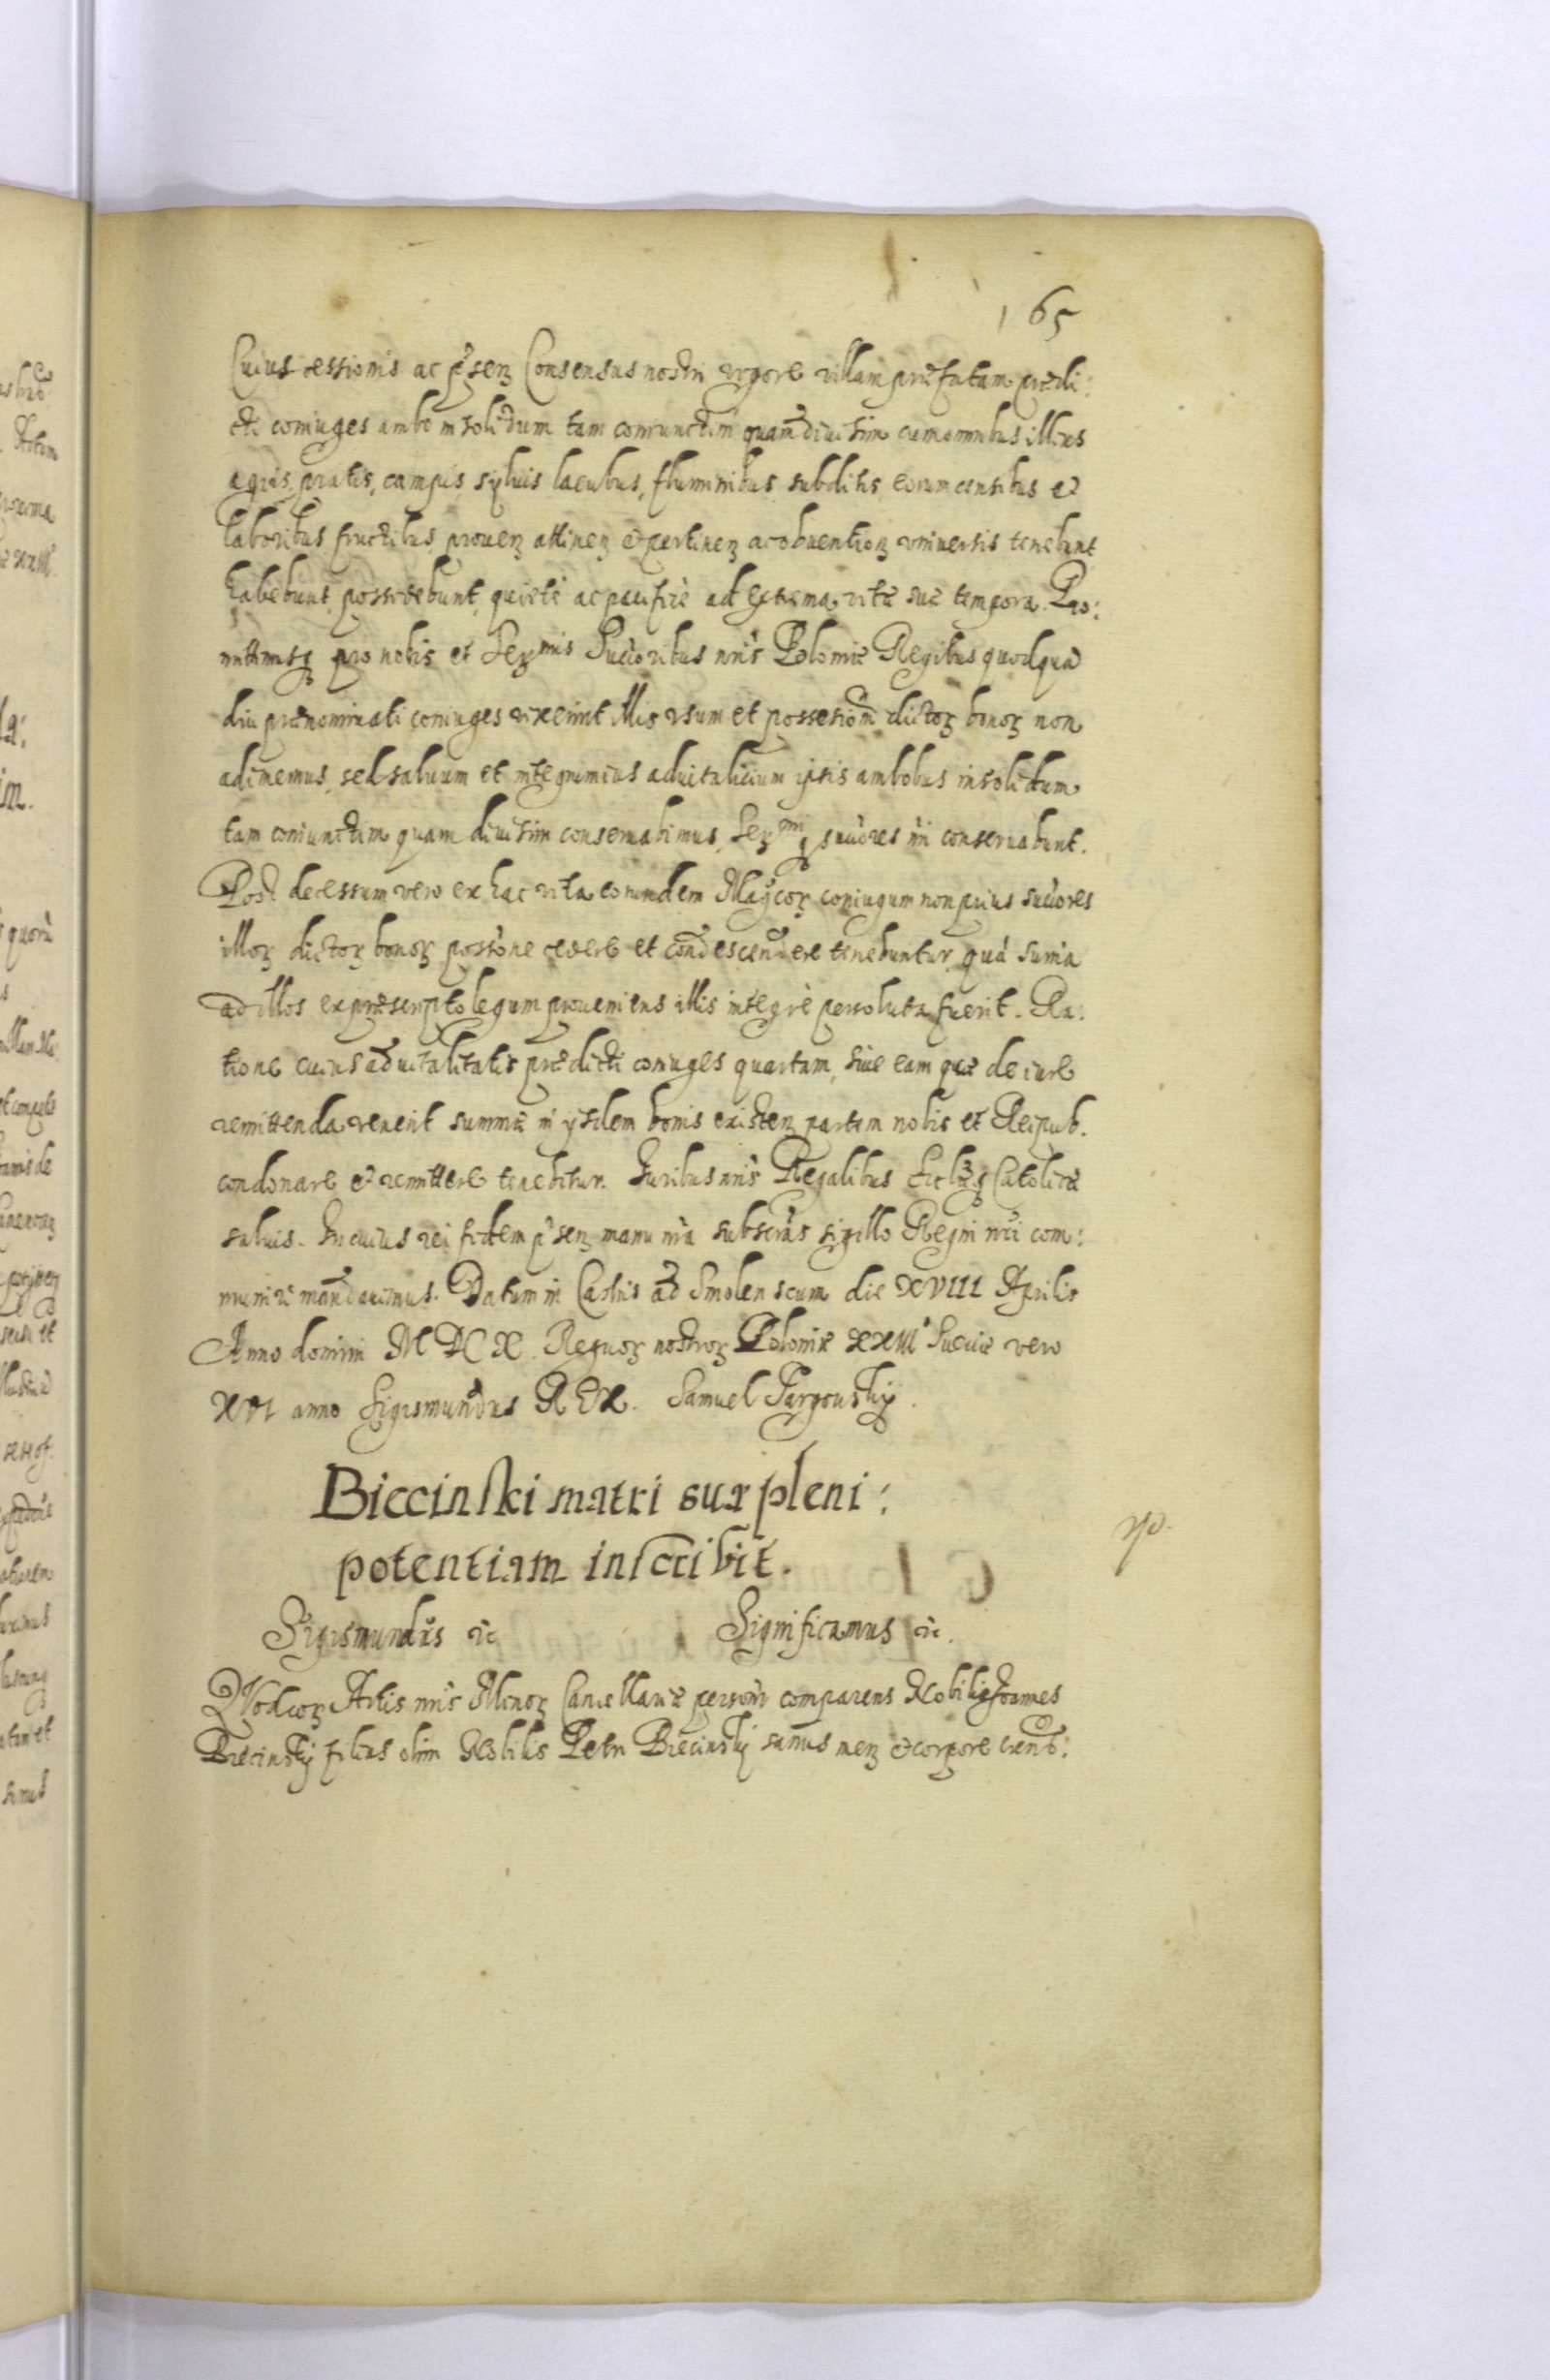 165
Cuius cessionis ac p̃sen̄ Consensus nostri vigore villam præfatam prædi:
cti coniuges ambo in solidum tam coniunctim quam diuisim cum omnibus illius
agris, pratis, campis, syluis lacubus, fluminibus subditis, eorum censibus et
laboribus fructibus prouen̄ attinen̄ et pertinen̄ ac obuention̄ vniuersis tenebunt
habebunt, possidebunt, quietè ac pacificè ad extrema vitæ suæ tempora. Pro:
mittimusq̃ pro nobis et Ser^mis Succõribus nr̃is Poloniæ Regibus quod quã
diu prænominati coniuges vixerint illis vsum et possesionẽ dictoꝝ bonoꝝ non
adimemus, sed saluum et integrum ius aduitalicium ipsis ambobus in solidum
tam coniunctim quam diuisim conseruabimus, Ser^miq̃ succõres nr̃i conseruabunt.
Post decessum vero ex hac vita eorundem Mag̃coꝝ coniugum non prius succõres
illoꝝ dictoꝝ bonoꝝ possõne cedere et condescendere tenebuntur, quã sum̃a
ad illos ex præscripto legum proueniens illis integrè persoluta fuerit. Ra:
tione cuius aduitalitatis prædicti coniuges quartam, siue eam quæ de iure
remittenda venerit summæ in ysdem bonis existen̄ partem nobis et Reipub.
condonare et remittere tenebitur. Iuribus nr̃is Regalibus Eccl̃æq̃ Catolicæ
saluis. In cuius rei fidem p̃sen̄ manu nr̃a subscr̃as sigillo Regni nr̃i com:
muniri mandauimus. Datum in Castris ad Smolenscum die XVIII Aprilis
Anno domini M DC X. Regnoꝝ nostroꝝ Poloniæ XXIII Sueciæ vero
XVI anno Sigismundus REX. Samuel Targouskij.
Biecinski matri suæ pleni:
potentiam inscribit.
rp.
Sigismundus etc Significamus etc.
Quod coꝝ Actis nr̃is Minoꝝ Cancellariæ personr̃ comparens Nobilis Joannes
Biecinskij filius olim Nobilis Petri Biecinskij sanus men̄ et corpore existen̄: